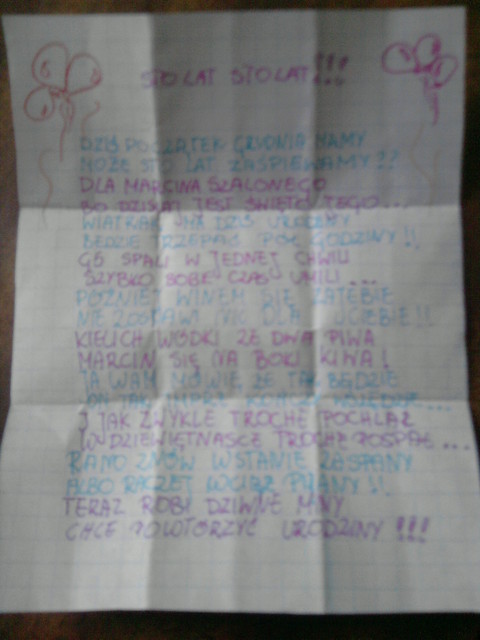 STO LAT STO LAT!!!
DZIŚ POCZĄTEK GRUDNIA MAMY
MOŻE STO LAT ZAŚPIEWAMY??
DLA MARCINA SZALONEGO
BO DZISIAJ JEST ŚWIĘTO JEGO...
WIATRAK MA DZIŚ URODZINY
BĘDZIE TRZEPAŁ PÓŁ GODZINY!!
GS SPALI W JEDNEJ CHWILI
SZYBKO SOBIE CZAS UMILI...
PÓŹNIEJ WINEM SIĘ ZAJEBIE
NIE ZOSTAWI NIC DLA CIEBIE!!
KIELICH WÓDKI ZE DWA PIWA
MARCIN SIĘ NA BOKI KIWA!
JA WAM MÓWIĘ ŻE TAK BĘDZIE
ON TAK IMPRĘ KOŃCZY WSZĘDZIE...
I JAK ZWYKLE TROCHĘ POCHLAŁ
W DZIEWIĘTNASCE TROCHĘ POSPAŁ...
RANO ZNÓW WSTANIE ZASPANY
ALBO RACZEJ WCIĄŻ PIJANY!!
TERAZ ROBI DZIWNE MINY
CHCE POWTÓRZYĆ URODZINY!!!